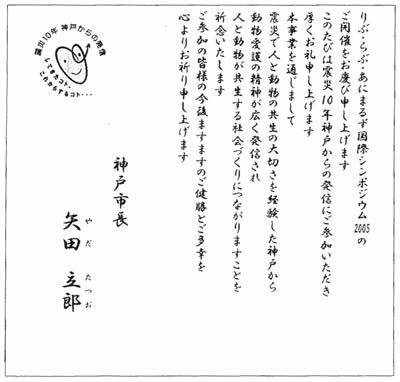 りぶ・らぶ・あにまるず国際シンポジウム2005の
ご開催をお慶び申し上げます
このたびは震災10年神戸からの発信にご参加いただき
厚くお礼申し上げます
本事業を通じまして
震災で人と動物の共生の大切さを経験した神戸から
動物愛護の精神が広く発信され
人と動物が共生する社会づくりにつながりますことを
祈念いたします
ご参加の皆様の今後ますますのご健勝とご多幸を
心よりお祈り申し上げます
神戸市長
矢田立郎
やだ たつお
震災10年 神戸からの発信
してきたコト、
これからするコト・・・